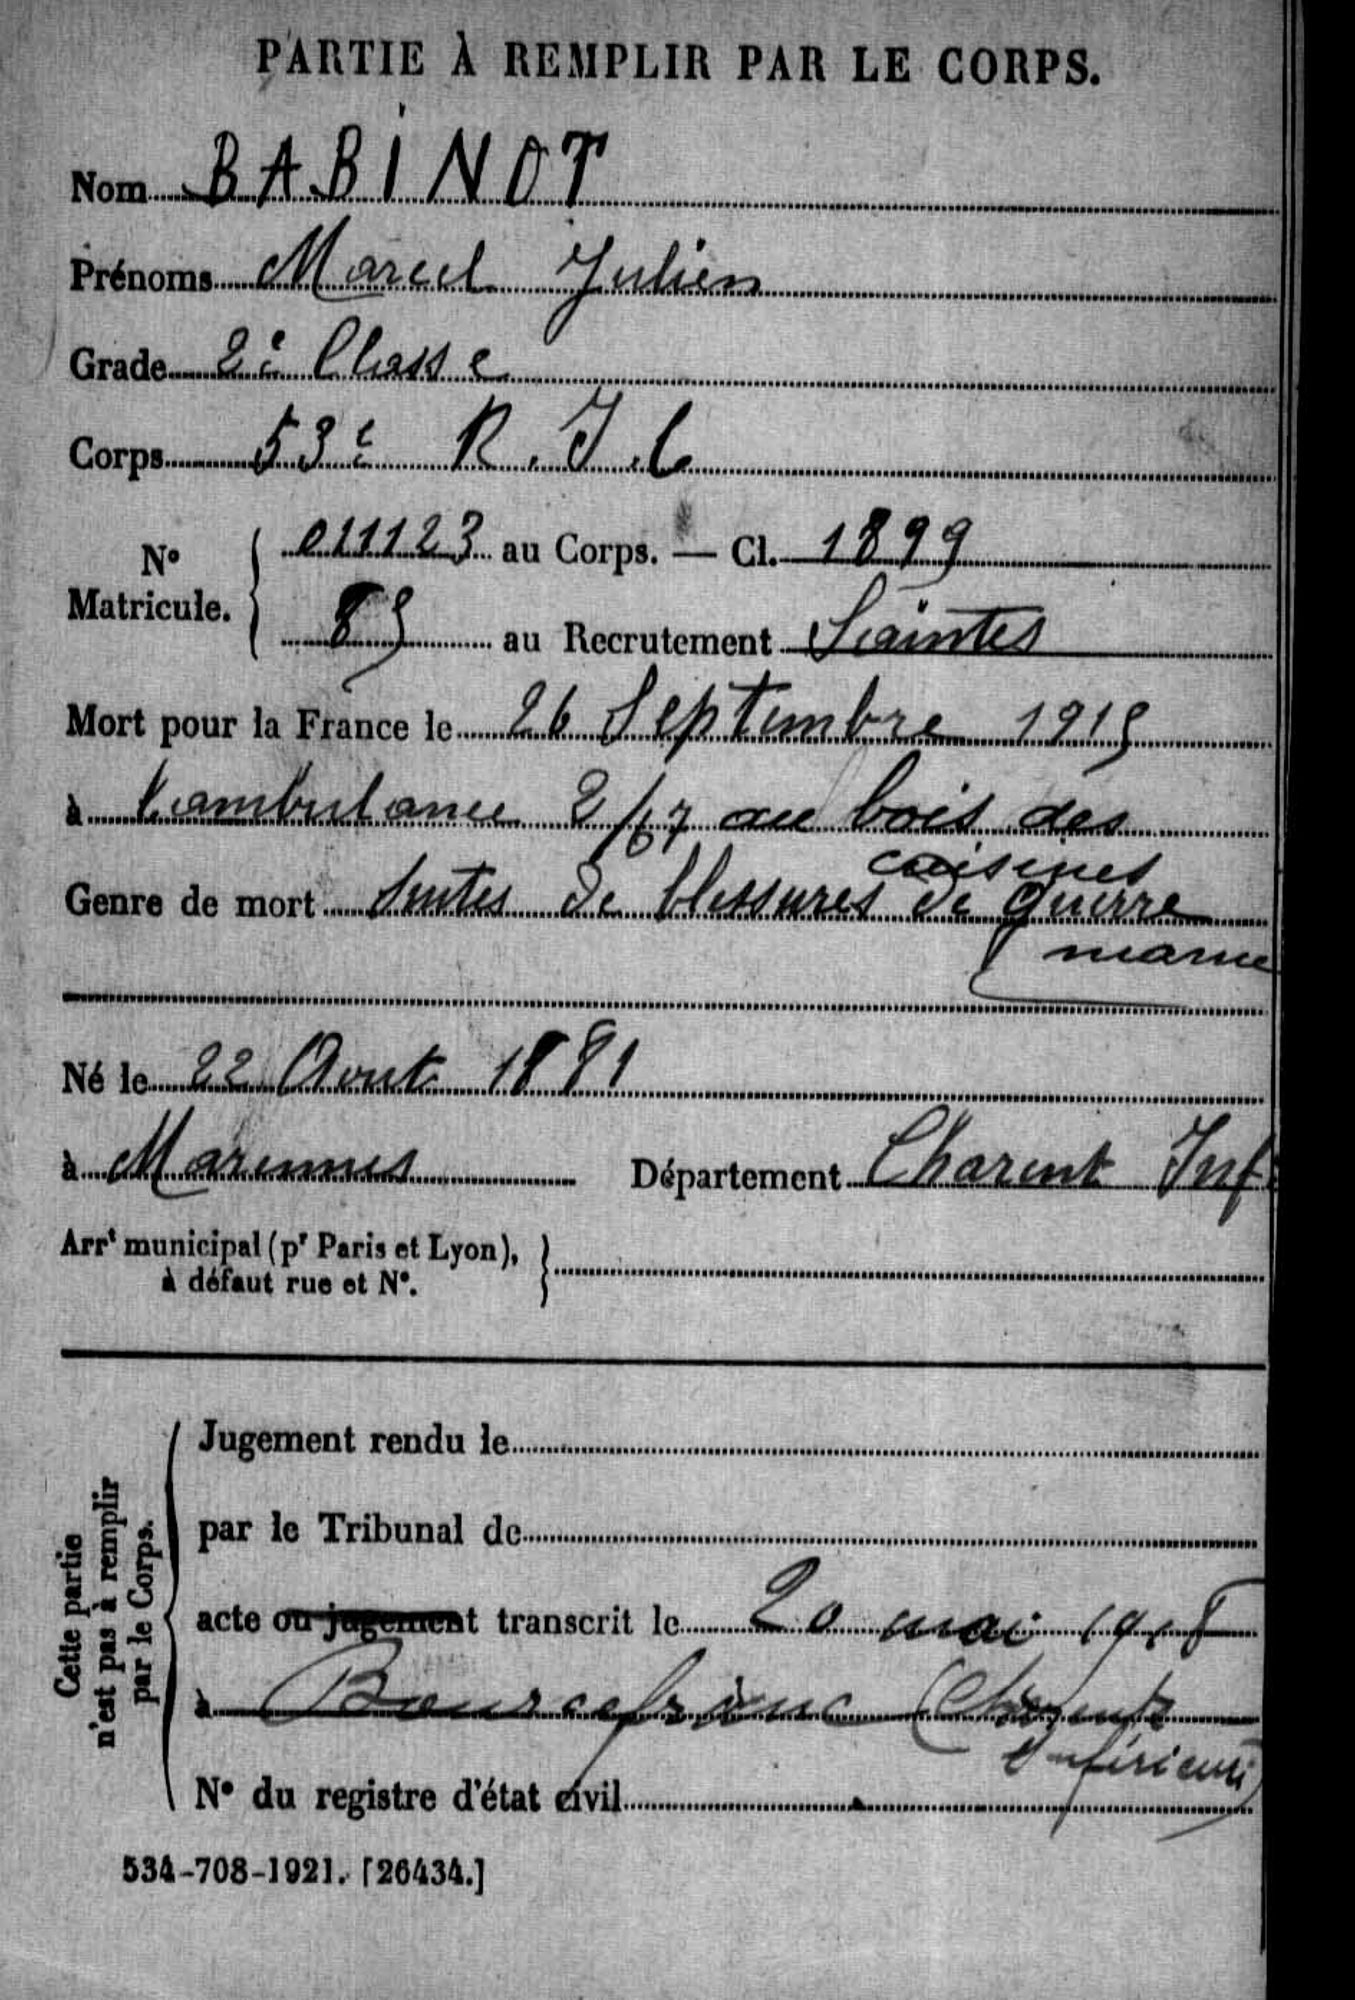 PARTIE À REMPLIR PAR LE CORPS.
Nom BABINOT
Prénoms Marcel Julien
Grade 2e Classe
Corps 53e R.I.C
No Matricule. { 011123 au Corps. — Cl. 1899
85 au Recrutement Saintes
Mort pour la France le 26 Septembre 1915
à l'ambulance 2/67 au bois des
cuisines
Genre de mort Suites de blessures de guerre
marne
Né le 22 Aout 1881
à Marennes Département Charent Inf
Arrt municipal (pr Paris et Lyon), }
à défaut rue et N°.
Cette partie
n'est pas à remplir
par le Corps.
Jugement rendu le
par le Tribunal de
acte ou jugement transcrit le 20 mai 1918
à Bourcefranc (Charente
Inférieure)
N° du registre d'état civil
534-708-1921. [26434.]